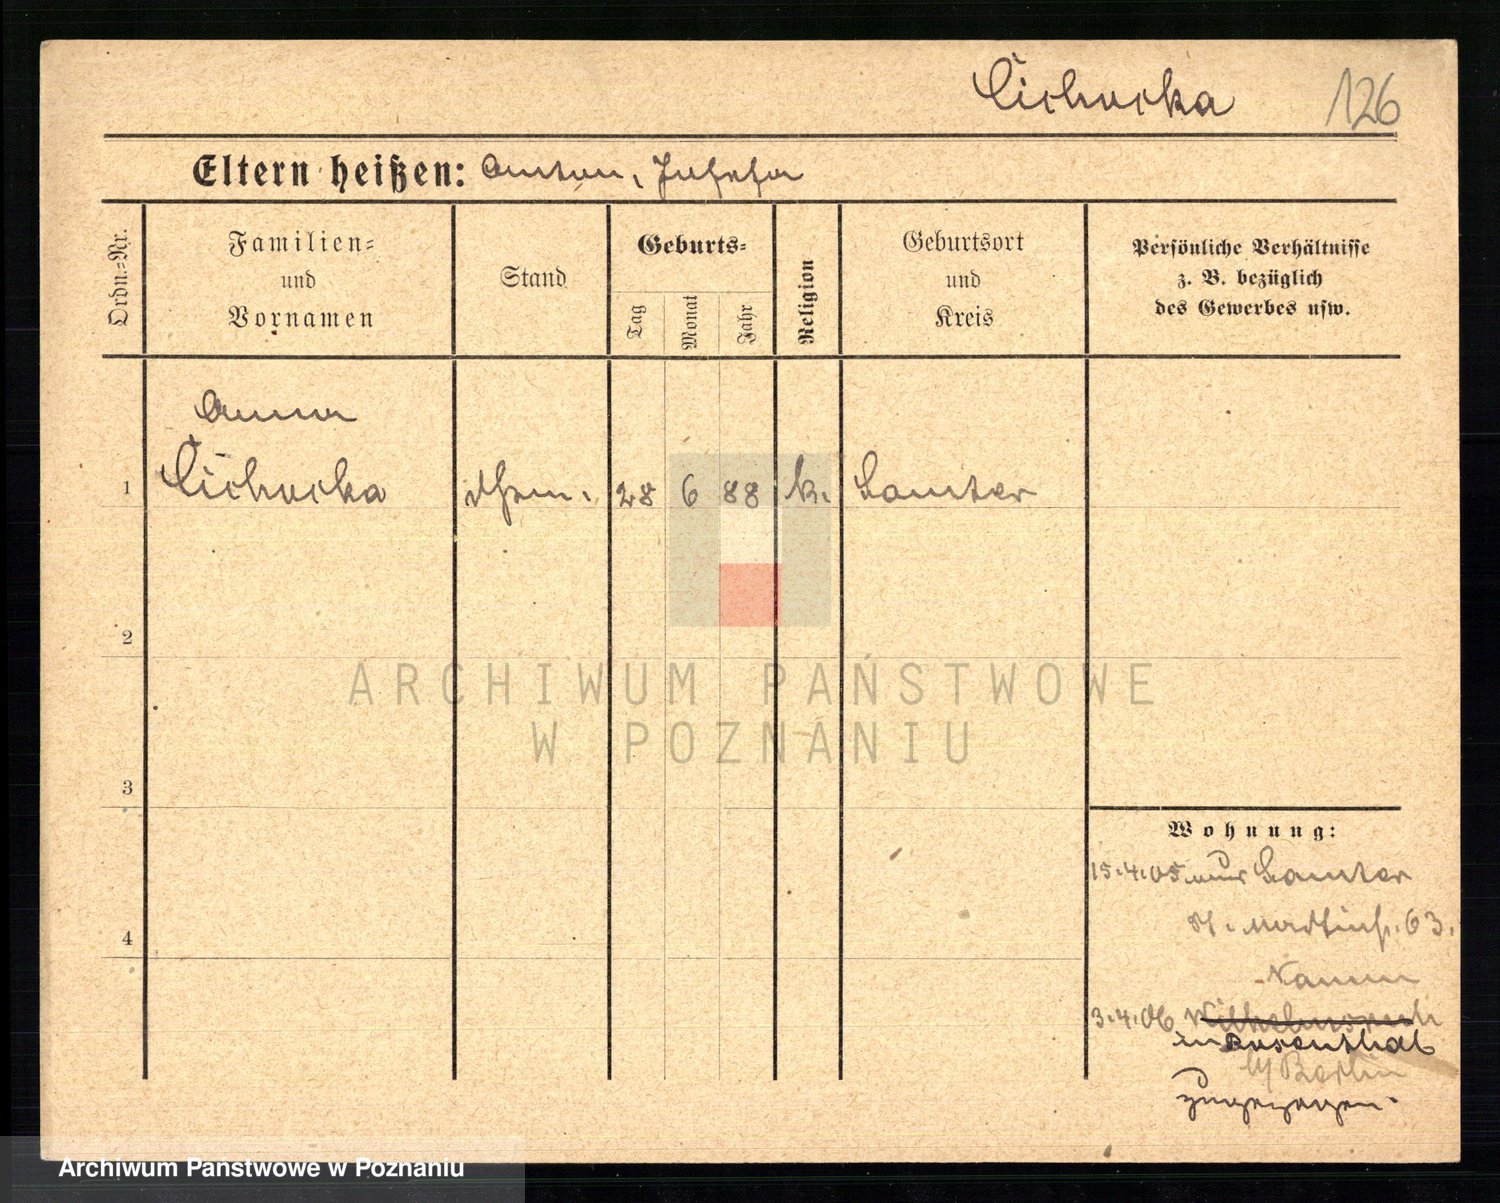 Cichocka 126
Eltern heißen: Anton, Josefa
Ordn.-Nr.
Familien-
und
Vornamen
Stand
Geburts-
Tag
Monat
Jahr
Religion
Geburtsort
und
Kreis
Persönliche Verhältnisse
z. B. bezüglich
des Gewerbes usw.
Anna
1 Cichocka 28 6 88 k. Samter
2
3
4
Wohnung:
15.4.05 Samter
St. Martinstr. 63.
3.4.06 Wilhelmsruh
in Rosenthal
b/ Berlin
zugezogen.
ARCHIWUM PAŃSTWOWE
W POZNANIU
Archiwum Państwowe w Poznaniu